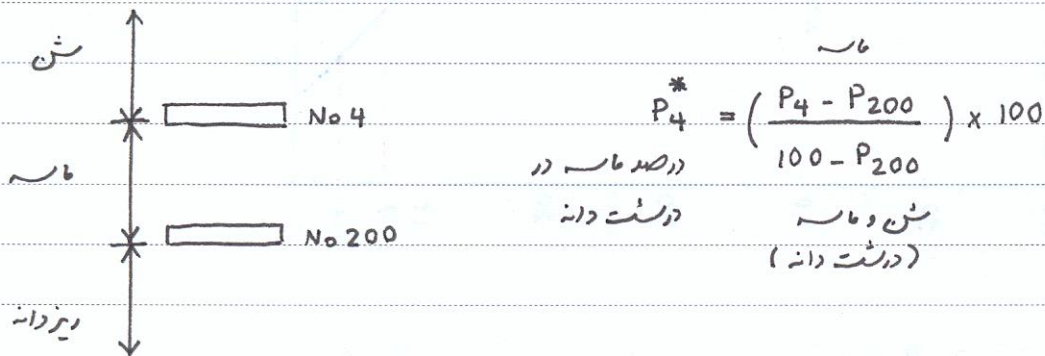 شن
No 4
ماسه
No 200
ریزدانه
ماسه
P₄* = ( (P₄ - P₂₀₀) / (100 - P₂₀₀) ) × 100
درصد ماسه در
درشت دانه
شن و ماسه
(درشت دانه)